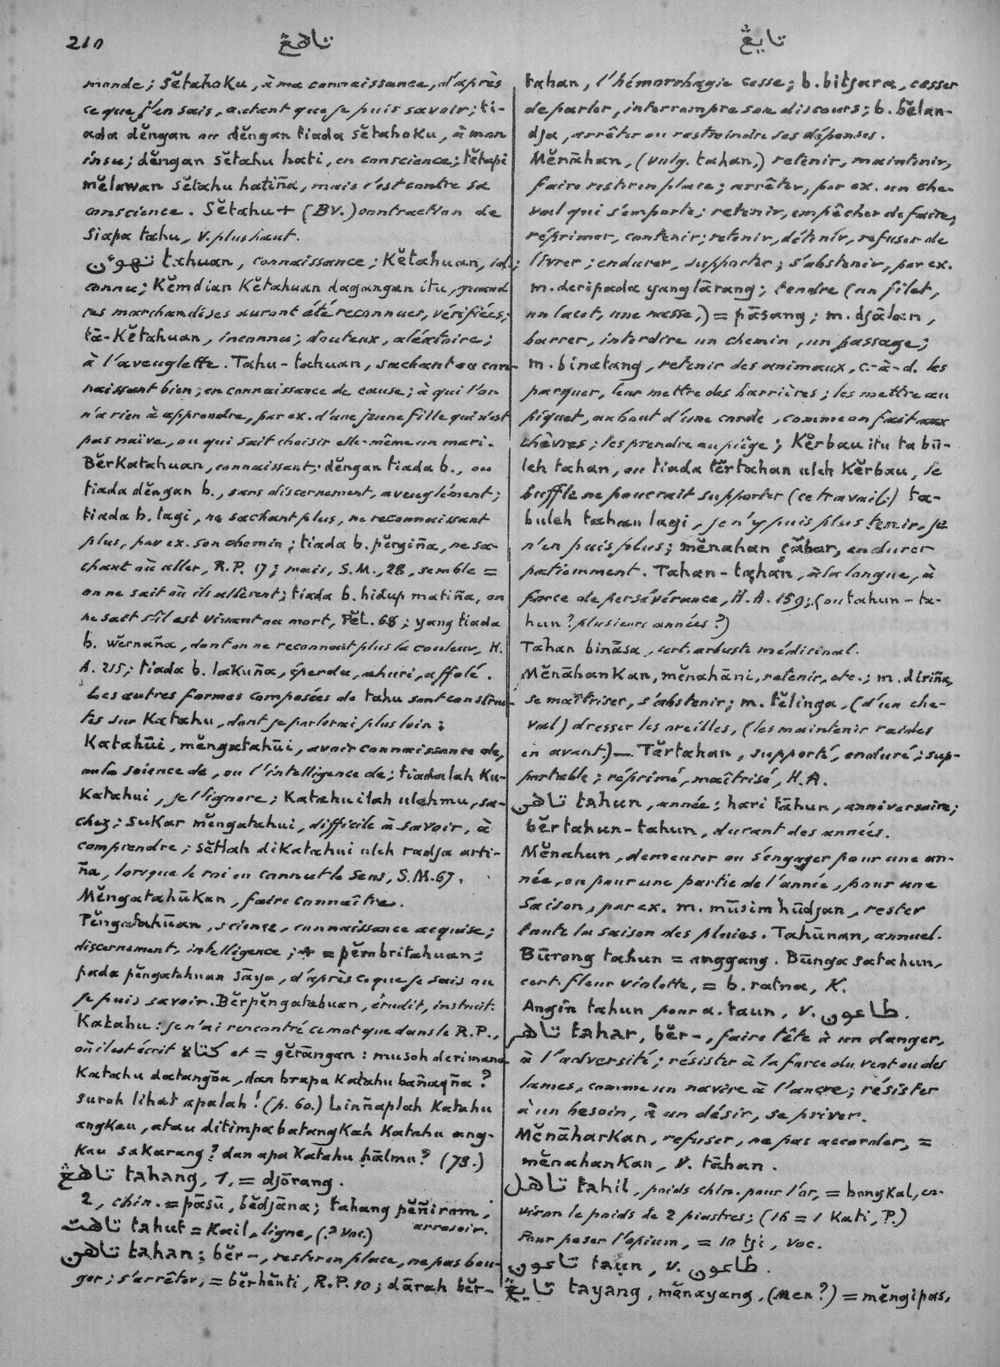 210
تاهڠ
تايڠ
monde; sĕtahoku, à ma connaissance, d'après
ce que j'en sais, autant que je puis savoir; ti-
ada dĕngan ou dĕngan tiada sĕtahoku, à mon
insu; dĕngan sĕtahu hati, en conscience; tĕtapi
mĕlawan sĕtahu hatiña, mais c'est contre sa
conscience. Sĕtahu + (BV.) contraction de
siapa tahu, v. plus haut.
تهوءن tahuan, connaissance; Kĕtahuan, id.;
connu; Kĕmdian Kĕtahuan dagangan itu, quand
ces marchandises auront été reconnues, vérifiées;
tā-Kĕtahuan, inconnu; douteux, aléatoire;
à l'aveuglette. Tahu-tahuan, sachant ou con-
naissant bien; en connaissance de cause; à qui l'on
n'a rien à apprendre, par ex. d'une jeune fille qui n'est
pas naïve, ou qui sait choisir elle-même un mari.
BĕrKatahuan, connaissant; dĕngan tiada b., ou
tiada dĕngan b., sans discernement, aveuglément;
tiada b. lagi, ne sachant plus, ne reconnaissant
plus, par ex. son chemin; tiada b. pĕrgiña, ne sa-
chant où aller, R.P. 17; mais, S.M., 28, semble =
on ne sait où ils allèrent; tiada b. hidup matiña, on
ne sait s'il est vivant ou mort, Pĕl. 68; yang tiada
b. wĕrnaña, dont on ne reconnaît plus la couleur, H.
A. 215; tiada b. lakuña, éperdu, ahuri, affolé.
Les autres formes composées de tahu sont construi-
tes sur Katahu, dont je parlerai plus loin:
Katahūi, mĕngatahūi, avoir connaissance de,
ou la science de, ou l'intelligence de; tiadalah Ku-
Katahui, je l'ignore; Katahuilah ulehmu, sa-
chez; sukar mĕngatahui, difficile à savoir, à
comprendre; sĕtlah diKatahui uleh radja arti-
ña, lorsque le roi en connut le sens, S.M. 67.
MĕngatahūKan, faire connaître.
Pĕngatahūan, science, connaissance acquise;
discernement, intelligence; = pĕmbritahuan;
pada pĕngatahuan sāya, d'après ce que je sais ou
je puis savoir. Bĕrpĕngatahuan, érudit, instruit.
Katahu: je n'ai rencontré ce mot que dans le R.P.,
où il est écrit et = gĕrāngan: musoh derimana
Katahu datangña, dan brapa Katahu bañaqña?
suroh lihat apalah! (p. 60.) Linñaplah Katahu
angkau, atau ditimpa batangkah Katahu ang-
kau sakarang? dan apa Katahu hālmu? (78.)
تاهڠ tahang, 1, = djōrang.
2, chin. = pāsū, bĕdjāna; tahang pĕñiram,
arrosoir.
تاهت tahut = Kail, ligne, (? Voc.)
تاهن tahan; bĕr-, rester en place, ne pas bou-
ger; s'arrêter, = bĕrhĕnti, R.P. 10; dārah bĕr-
tahan, l'hémorrhagie cesse; b. bitjara, cesser
de parler, interrompre son discours; b. bĕlan-
dja, arrêter ou restreindre ses dépenses.
Mĕnāhan, (vulg. tahan,) retenir, maintenir,
faire rester en place; arrêter, par ex. un che-
val qui s'emporte; retenir, empêcher de faire,
réprimer, contenir; retenir, détenir, refuser de
livrer; endurer, supporter; s'abstenir, par ex.
m. deripada yang lārang; tendre (un filet,
un lacet, une nasse,) = pāsang; m. djālan,
barrer, interdire un chemin, un passage;
m. binatang, retenir des animaux, c.-à-d. les
parquer, leur mettre des barrières; les mettre au
piquet, au bout d'une corde, comme on fait aux
chèvres; les prendre au piège; Kĕrbau itu ta bū-
leh tahan, ou tiada tĕrtahan uleh Kĕrbau, le
buffle ne pourrait supporter (ce travail.) ta-
buleh tahan lagi, je n'y puis plus tenir, je
n'en puis plus; mĕnahan çābar, endurer
patiemment. Tahan-tahan, à la longue, à
force de persévérance, H.A. 159; (ou tahun-ta-
hun? plusieurs années?)
Tahan bināsa, cert. arbuste médicinal.
MĕnāhanKan, mĕnahāni, retenir, etc.; m. diriña,
se maîtriser, s'abstenir; m. tĕlinga, (d'un che-
val) dresser les oreilles, (les maintenir raides
en avant.) — Tĕrtahan, supporté, enduré; sup-
portable; réprimé, maîtrisé, H.A.
تاهن tahun, année; hari tāhun, anniversaire;
bĕrtahun-tahun, durant des années.
Mĕnahun, demeurer ou s'engager pour une an-
née, ou pour une partie de l'année, pour une
saison, par ex. m. mūsim hūdjan, rester
toute la saison des pluies. Tahūnan, annuel.
Būrong tahun = anggang. Būnga satahun,
cert. fleur violette, = b. ratna, K.
Angin tahun pour a. taun, v. طاعون.
تاهر tahar, bĕr-, faire tête à un danger,
à l'adversité; résister à la force du vent ou des
lames, comme un navire à l'ancre; résister
à un besoin, à un désir, se priver.
MĕnāharKan, refuser, ne pas accorder, =
mĕnahanKan, v. tāhan.
تاهل tahil, poids chin. pour l'or, = bongkal, en-
viron le poids de 2 piastres; (16 = 1 Kati, P.)
Pour peser l'opium, = 10 tji, Voc.
تاعون taun, v. طاعون.
تايڠ tayang, mĕnayang, (Men?) = mĕngipas,